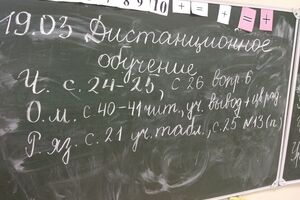 7 8 9 10 + = + =
19.03 Дистанционное
обучение
Ч. с. 24-25, с 26 вопр 6
О.м. с. 40-41 чит., уч. вывод + цв рад
Р.яз. с. 21 уч. табл., с. 25 №13 (п.)